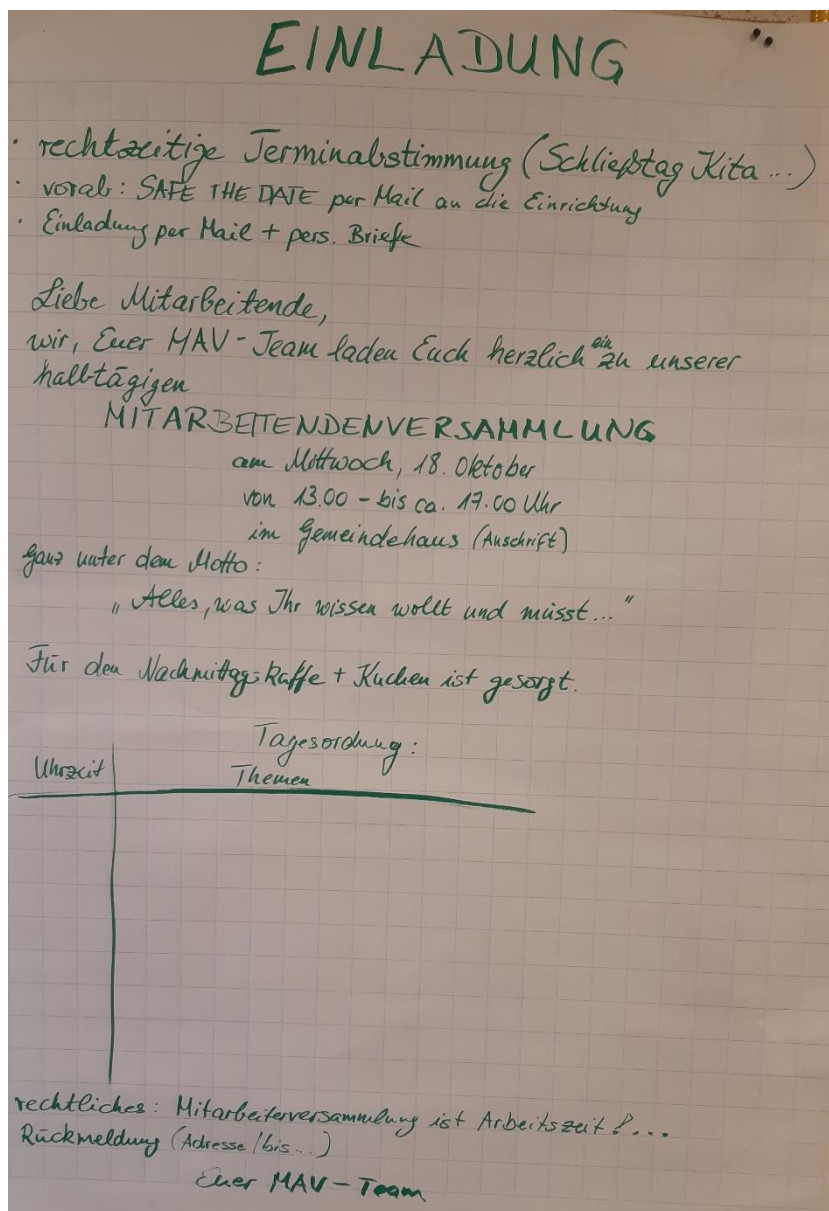 EINLADUNG
· rechtzeitige Terminabstimmung (Schließtag Kita...)
· vorab: SAFE THE DATE per Mail an die Einrichtung
· Einladung per Mail + pers. Briefe
Liebe Mitarbeitende,
wir, Euer MAV-Team laden Euch herzlich ein zu unserer
halbtägigen
MITARBEITENDENVERSAMMLUNG
am Mittwoch, 18. Oktober
von 13.00 - bis ca. 17.00 Uhr
im Gemeindehaus (Anschrift)
Ganz unter dem Motto:
„Alles, was Ihr wissen wollt und müsst..."
Für den Nachmittags-Kaffe + Kuchen ist gesorgt.
Tagesordnung:
Uhrzeit Themen
rechtliches: Mitarbeiterversammlung ist Arbeitszeit!...
Rückmeldung (Adresse/bis...)
Euer MAV-Team